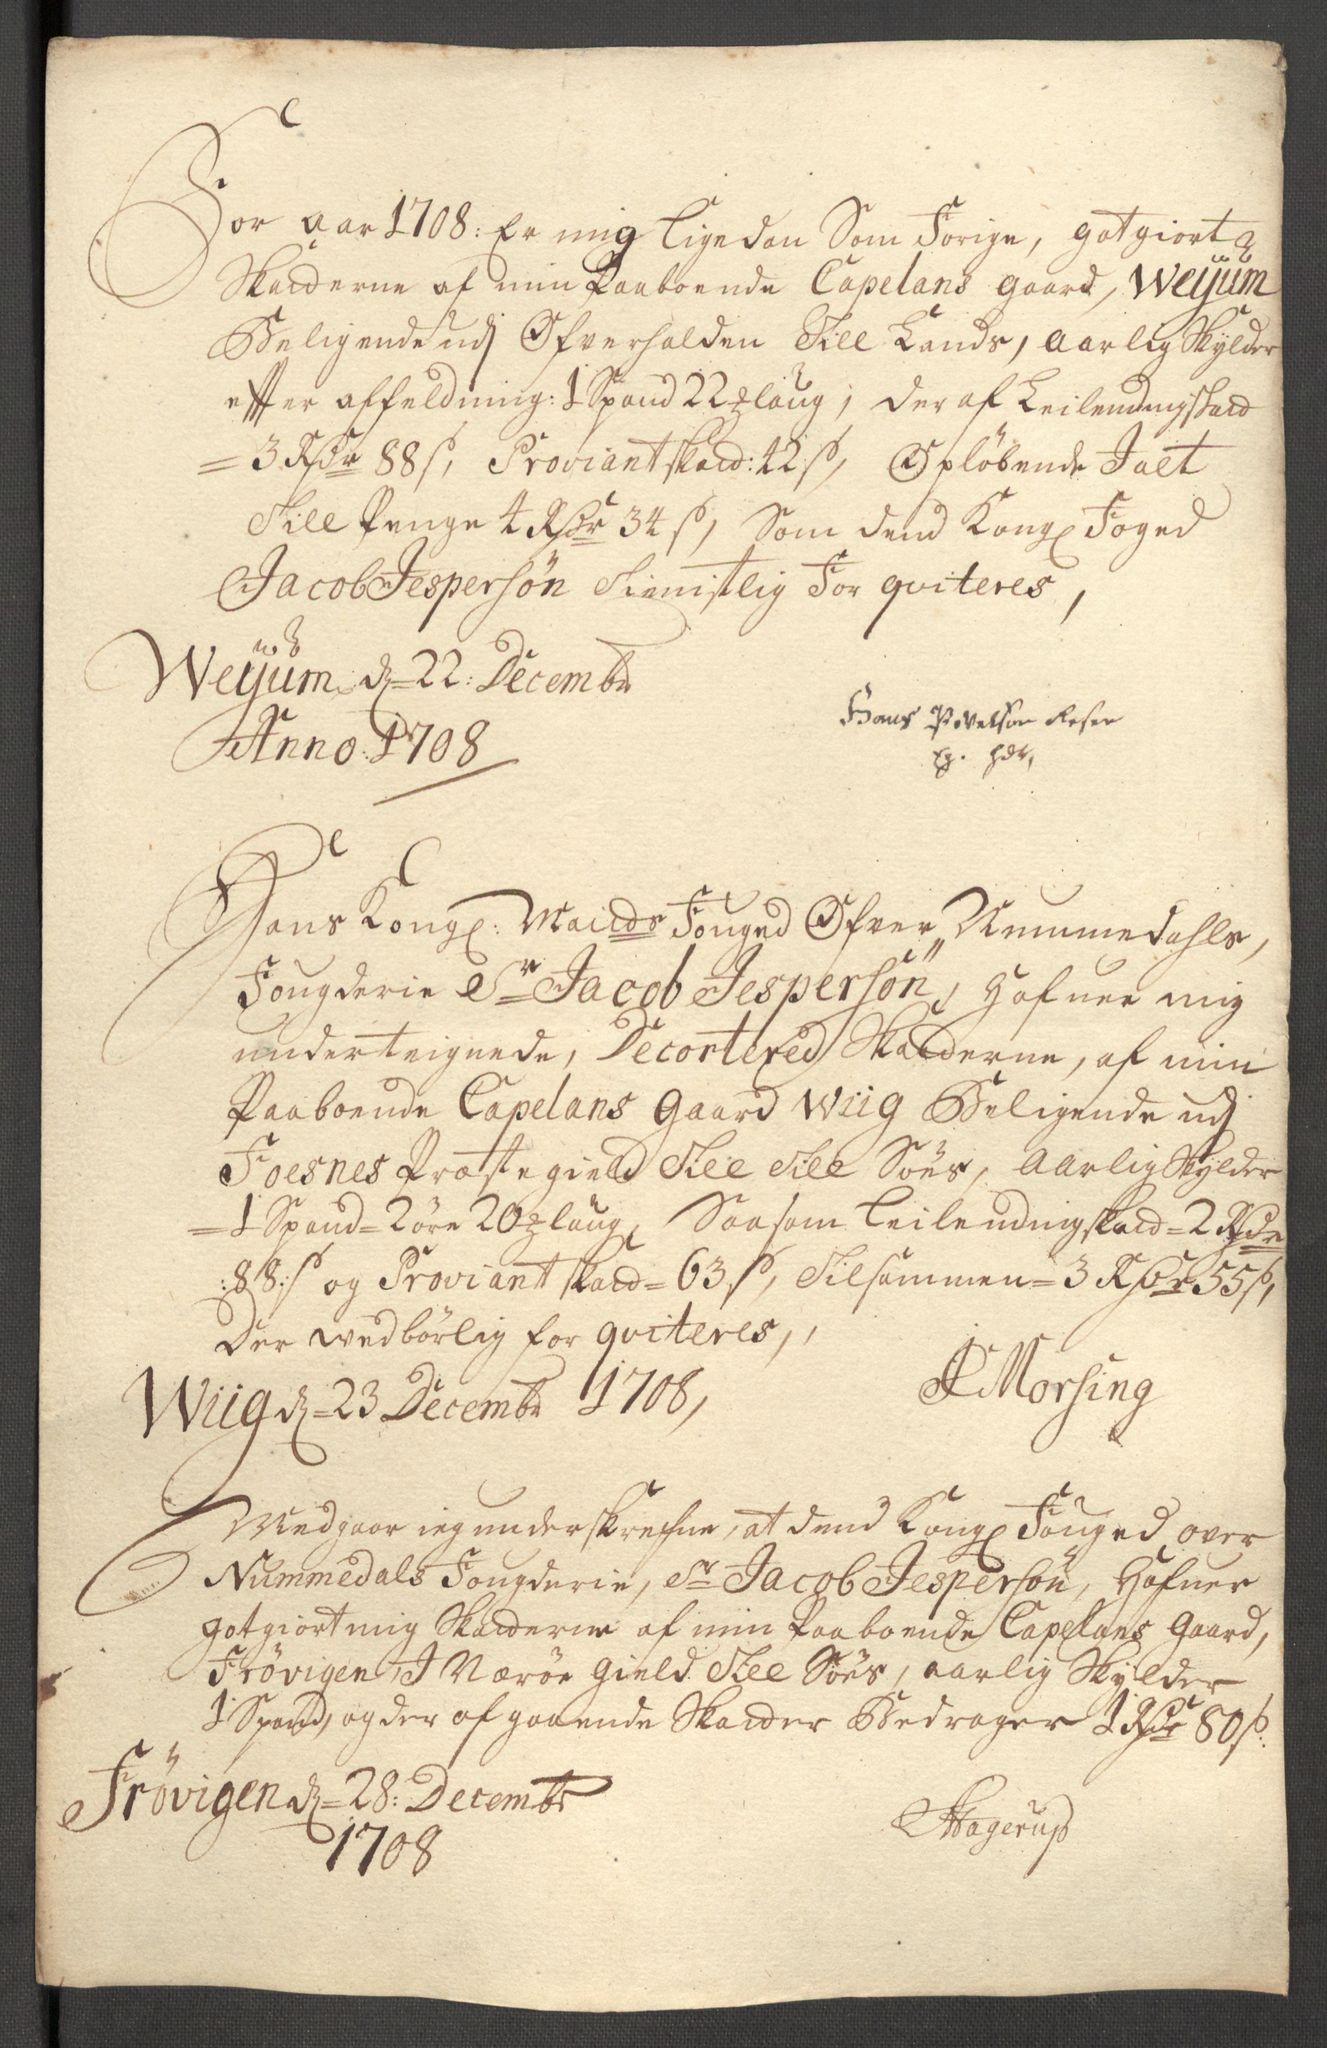 For aar 1708: Er mig ligedan Som Forige, gotgiort
Skatderne af min Paaboende Capelans gaard, Weÿum
Beligende udj Ofverhalden Till Lands, aarlig Skylder
efter affeldning: 1 Spand 22 laug, der af Leilendingskatd
= 3 Rdr 88 s, Proviantskatd: 42 s, Opløbende Jalt
Till Penge 4 Rdr 34 s, Som dend Kongl Foged
Jacob Jespersøn tienistlig For qviteres,
Weÿum d = 22: Decembr
Anno: 1708
Hans
Hans Kongl: Maitds Fouged Ofver Nummedahls,
Fougderie Sr Jacob Jespersøn, Hafuer mig
underteignede, Decortered Skatderne, af min
Paaboende Capelans gaard Wiig Beligende udj
Foesnes Præstegield Till Till Søes, Aarlig Skylder
= 1 Spand = 2 øre 20 laug, Saasom Leilendingskatd = 2 Rdr
: 88: s og Proviant skatd = 63 s, Tilsammen = 3 Rdr 55 s,
der wedbørlig for qviteres,,
Wiig d = 23 Decembr 1708,
Morsing
Medgaar ieg underskrefne, at dend Kongl Fouged over
Nummedals Fougderie, Sr Jacob Jespersøn, Hafuer
gotgiort mig Skatderne af min Paaboende Capelans Gaard,
Frøvigen, I Nærøe Gield Till Søes, aarlig Skylder
1 Spand, og der af gaaende Skatder Bedrager 1 Rdr 80 s:
Frøvigen d = 28: Decembr
1708
Hagerup